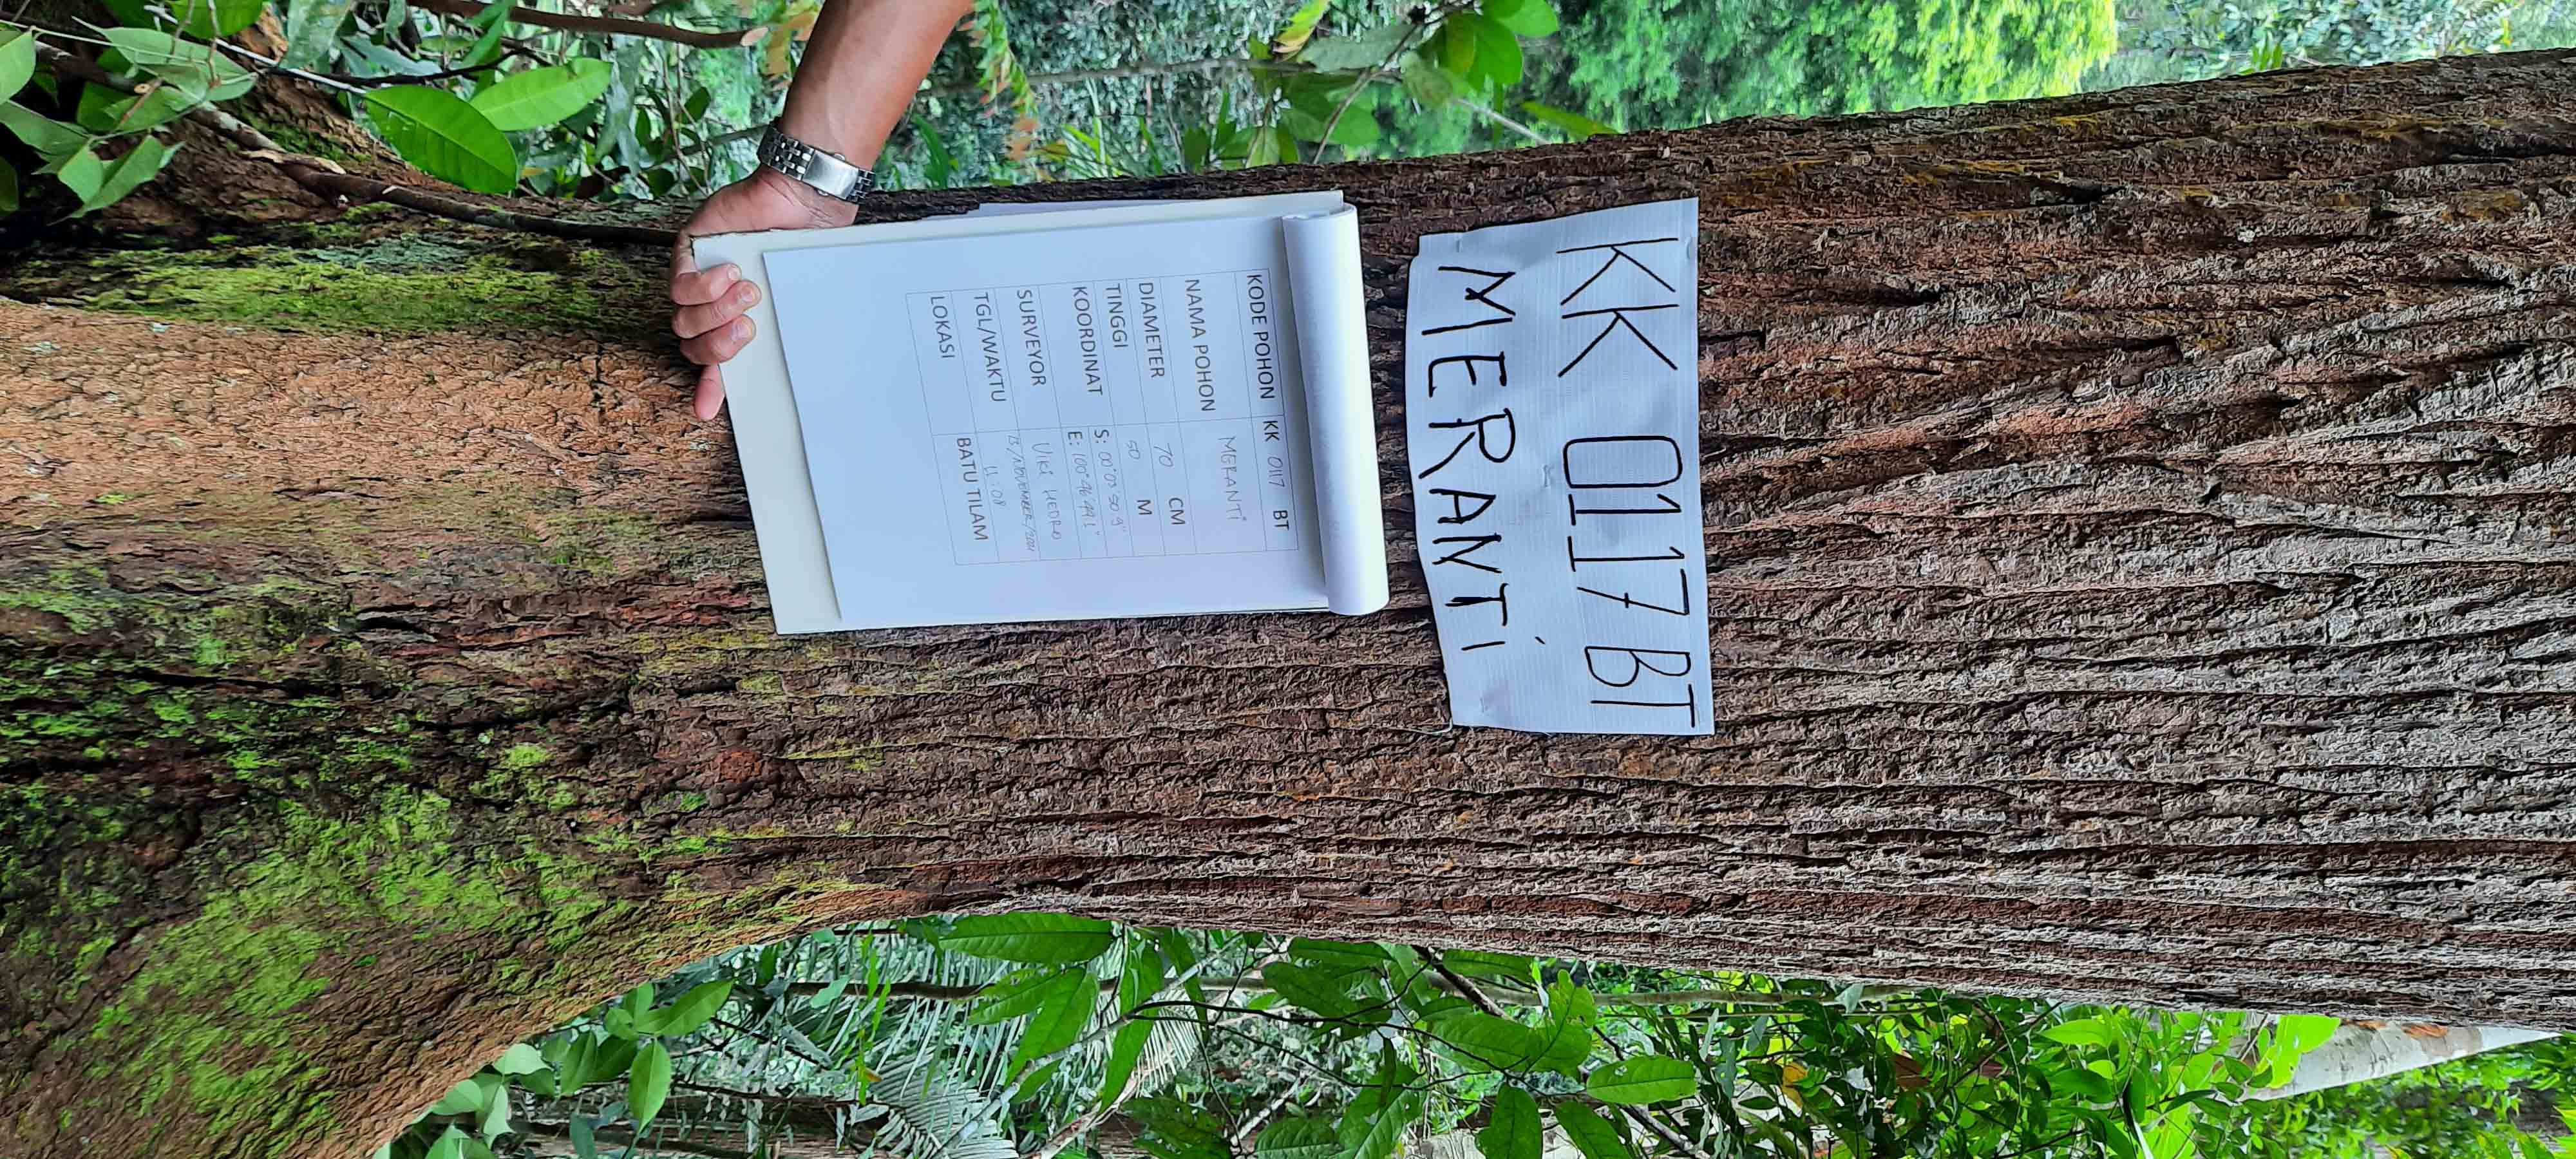 KK 0117 BT
MERANTI
KODE POHON KK 0117 BT
NAMA POHON MERANTI
DIAMETER 70 CM
TINGGI 50 M
KOORDINAT S: 00°03'50.9"
E: 100°46'49.1"
SURVEYOR VIKI HEDRO
TGL/WAKTU 13/NOVEMBER/2021
11:08
LOKASI BATU TILAM